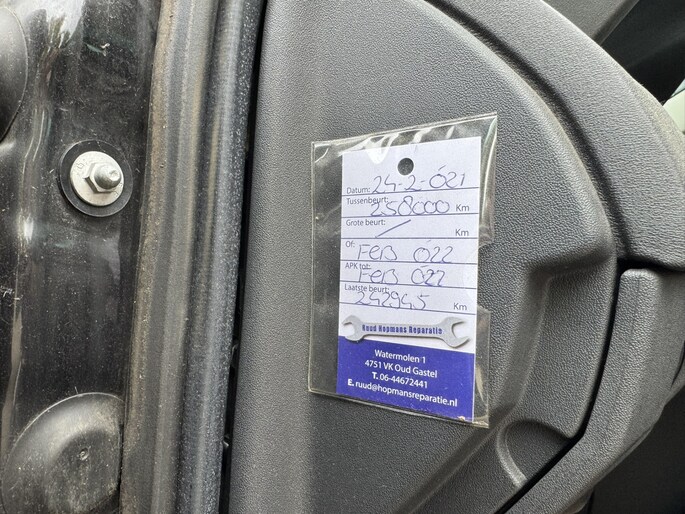 Datum: 24-2-'021
Tussenbeurt: 258000 Km
Grote beurt: / Km
Of: FEB '022
APK tot: FEB 022
Laatste beurt: 242945 Km
Ruud Hopmans Reparatie
Watermolen 1
4751 VK Oud Gastel
T. 06-44672441
E. ruud@hopmansreparatie.nl